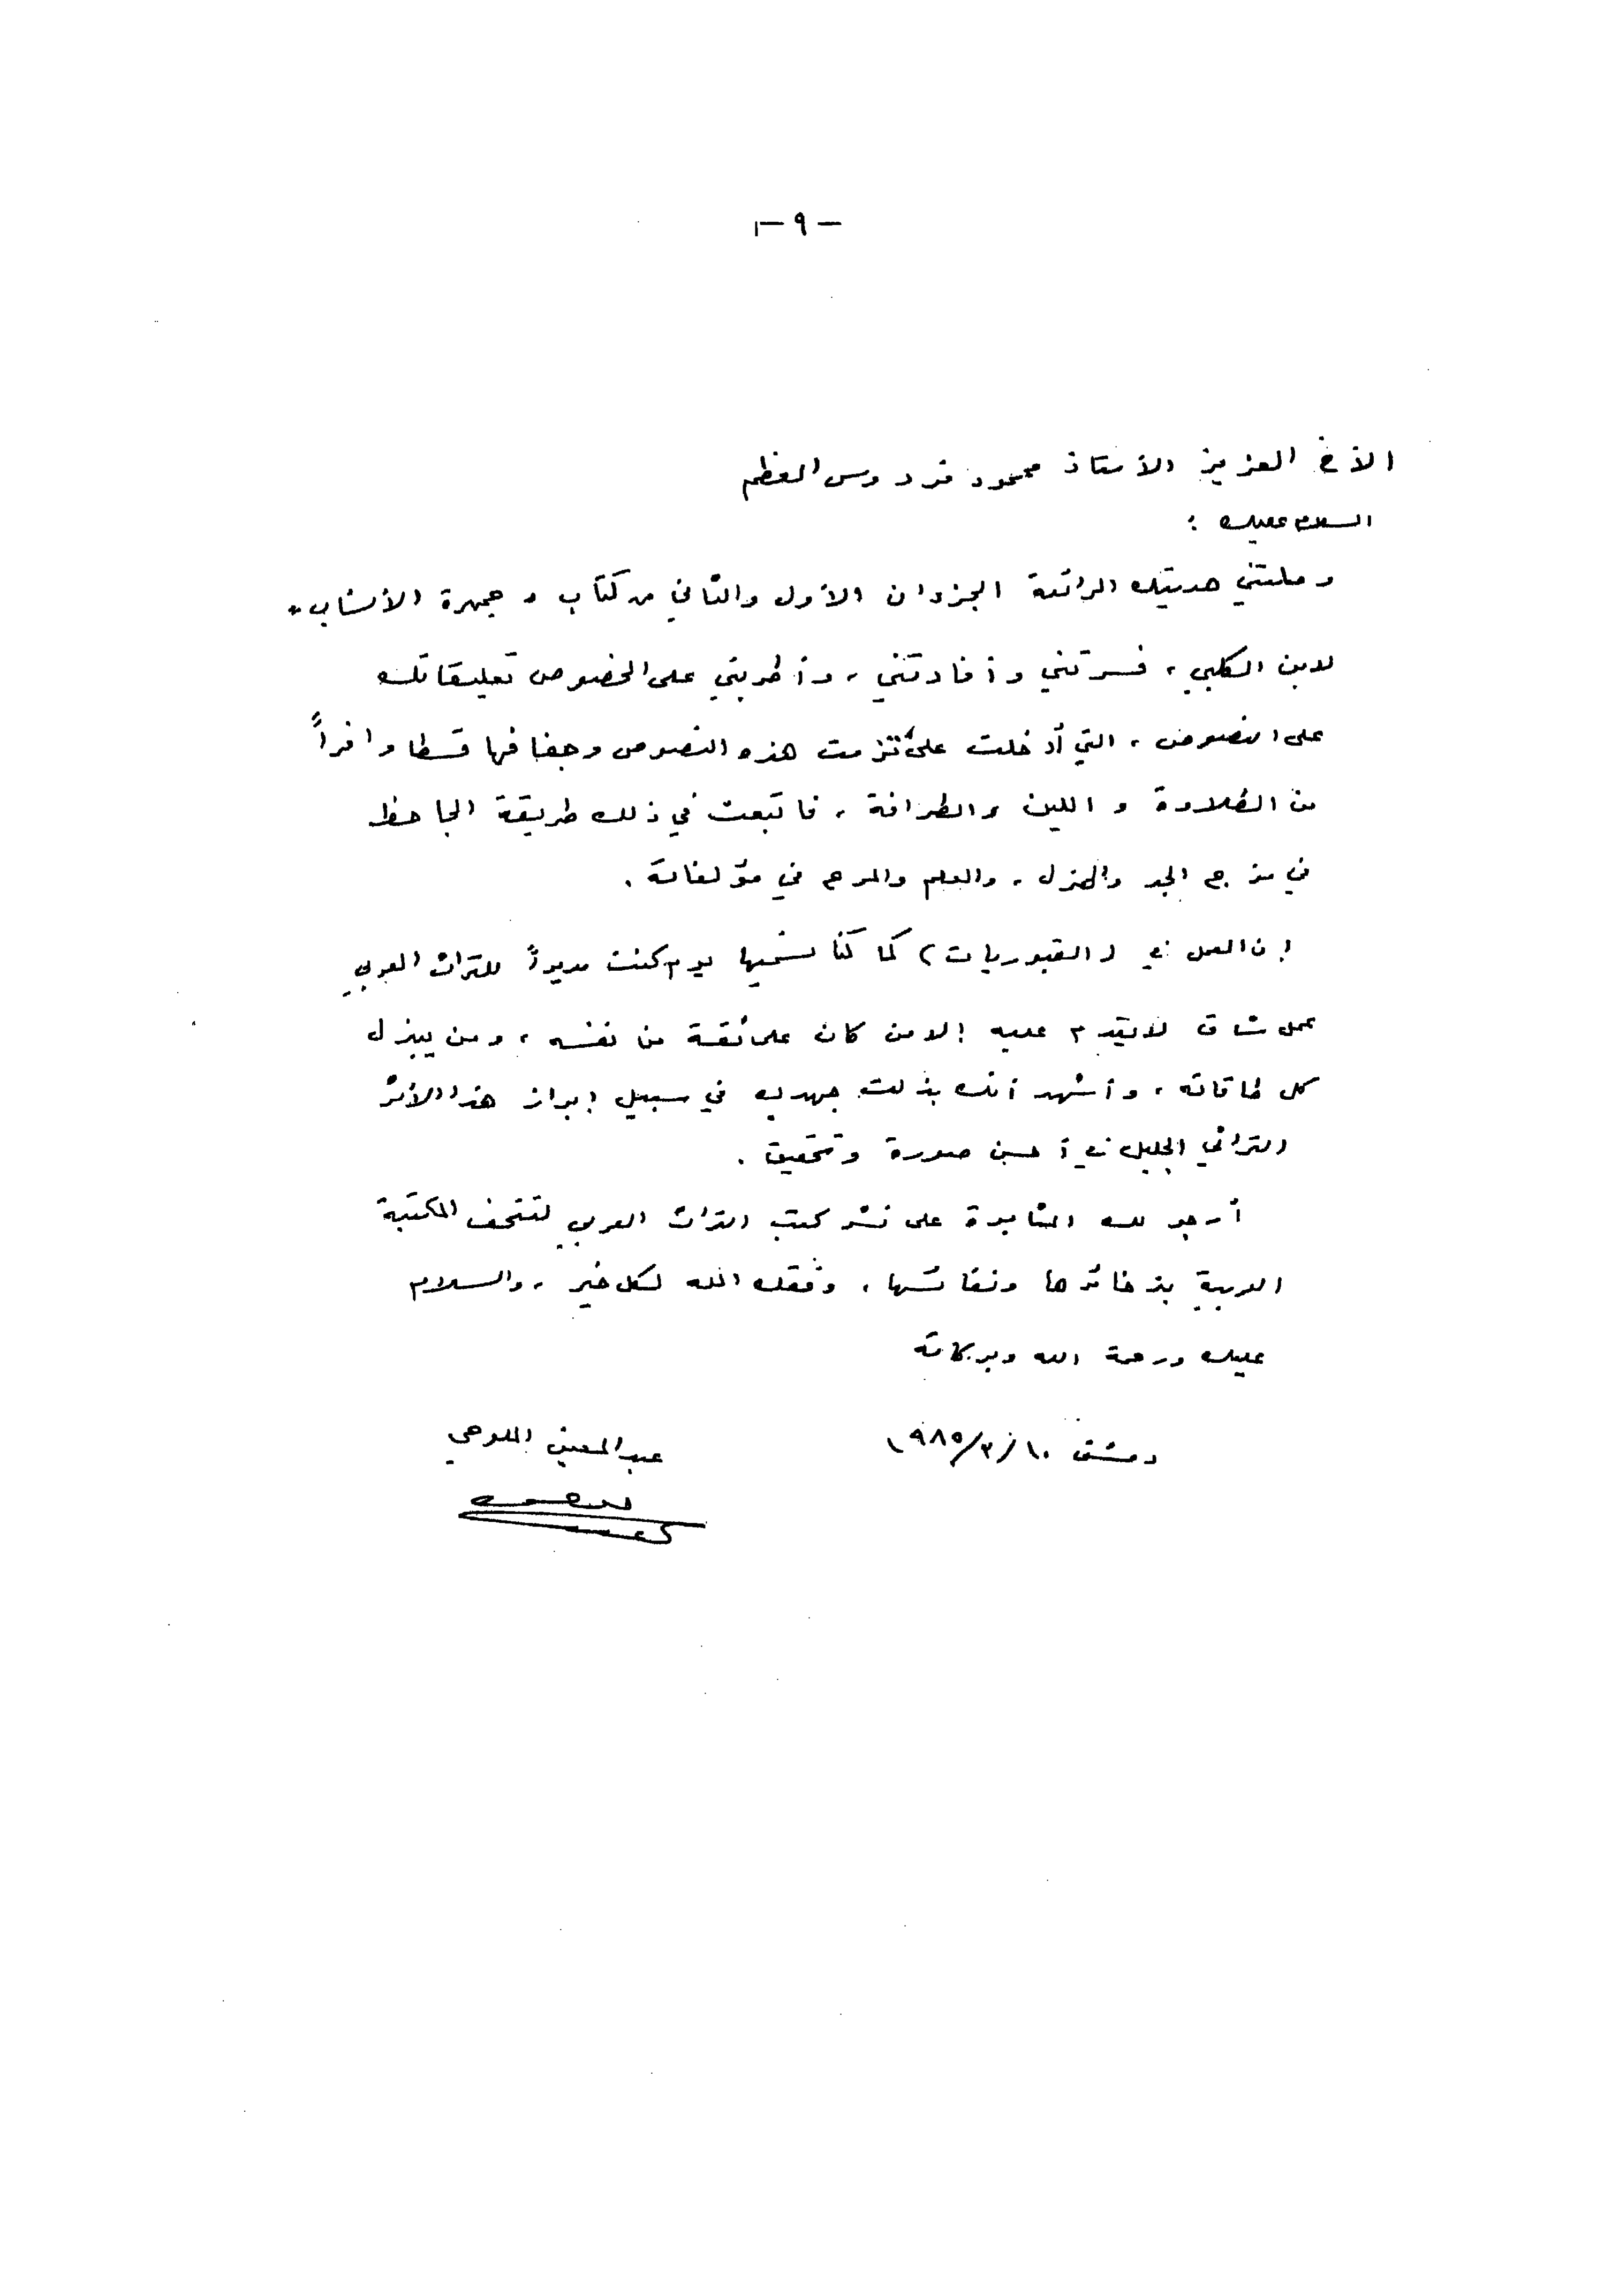 - ٩ -
الأخ العزيز الأستاذ محمود فردوس العظم
السلام عليك :
وصلتني هديتك الرائعة الجزءان الأول والثاني من كتاب « جمهرة الأنساب »
لابن الكلبي ، فسرتني وأفادتني ، وأطربتني على الخصوص تعليقاتك
على النصوص ، التي أدخلت على تزمت هذه النصوص وجفافها قسطا وافراً
من الطلاوة و اللين والطرافة ، فاتبعت في ذلك طريقة الجاحظ
في مزج الجد والهزل ، والعلم والمرح في مؤلفاته .
إن العمل في ( القبوريات ) كما كنا نسميها يوم كنت مديراً للتراث العربي
عمل شاق لا يقدم عليه إلا من كان على ثقة من نفسه ، ومن يبذل
كل طاقاته ، وأشهد أنك بذلت جهدك في سبيل إبراز هذا الأثر
التراثي الجليل في أحسن صورة وتحقيق .
أرجو لك المثابرة على نشر كتب التراث العربي لتتحف المكتبة
العربية بذخائرها ونفائسها ، وفقك الله لكل خير ، والسلام
عليك ورحمة الله وبركاته
دمشق ١٠/٣/١٩٨٥ عبد المعين الملوحي